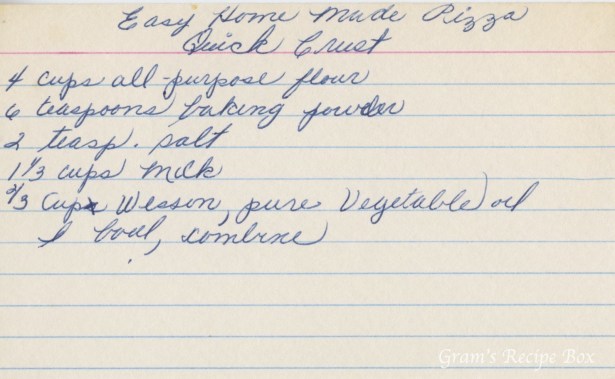 Easy Home Made Pizza
Quick Crust
4 cups all-purpose flour
6 teaspoons baking powder
2 teasp. salt
1 1/3 cups milk
2/3 cup Wesson, pure Vegetable oil
I bowl, combine
Gram's Recipe Box